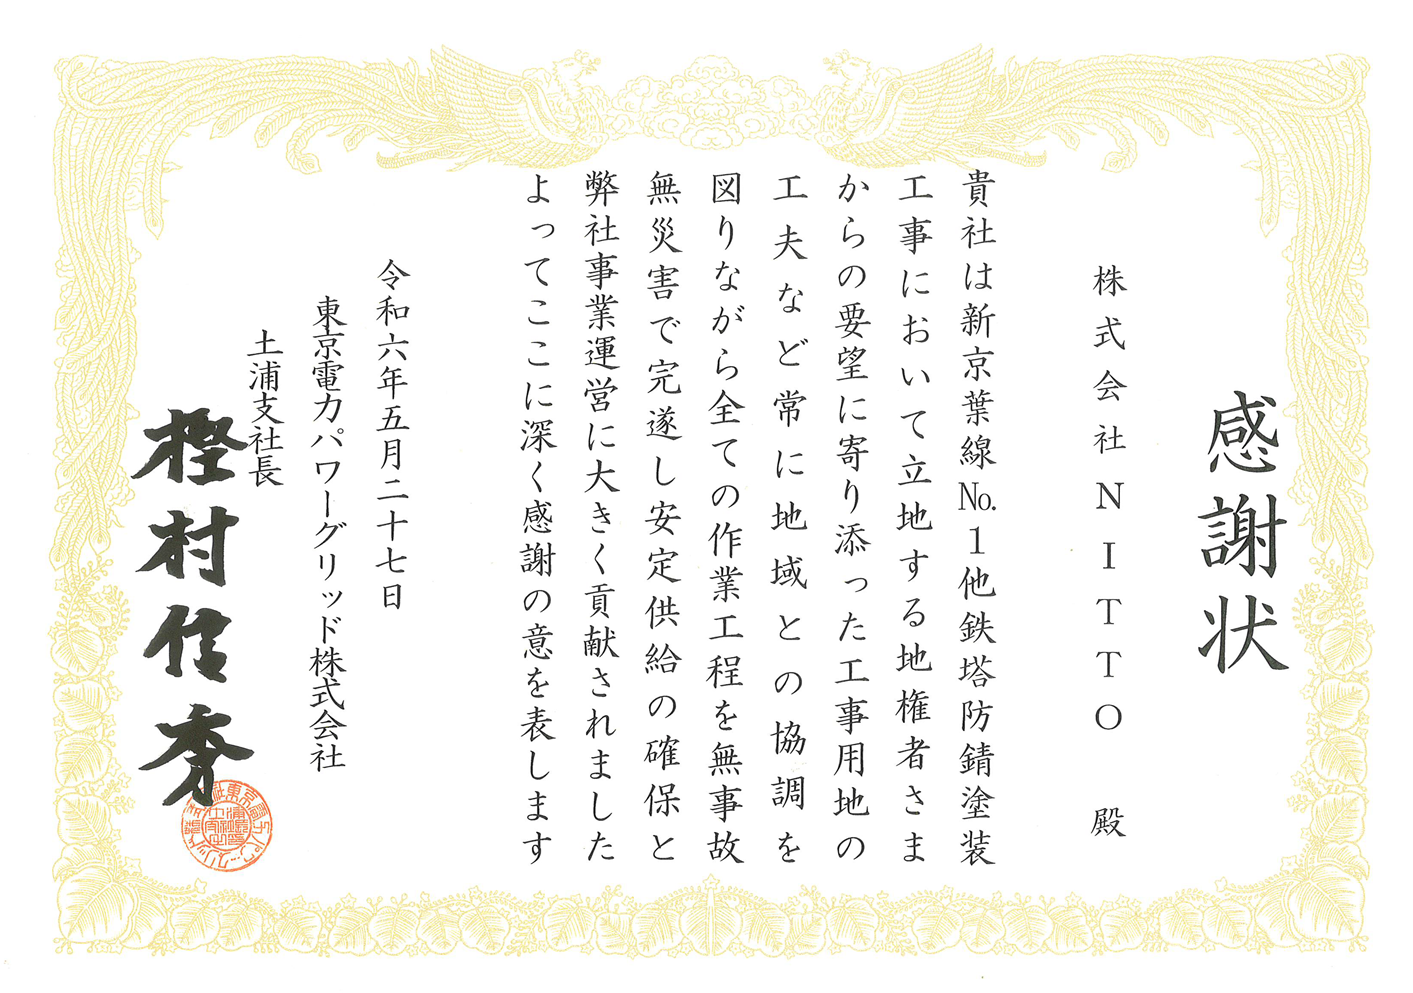 感謝状
株式会社NITTO 殿
貴社は新京葉線№1他鉄塔防錆塗装
工事において立地する地権者さま
からの要望に寄り添った工事用地の
工夫など常に地域との協調を
図りながら全ての作業工程を無事故
無災害で完遂し安定供給の確保と
弊社事業運営に大きく貢献されました
よってここに深く感謝の意を表します
令和六年五月二十七日
東京電力パワーグリッド株式会社
土浦支社長
樫村信秀